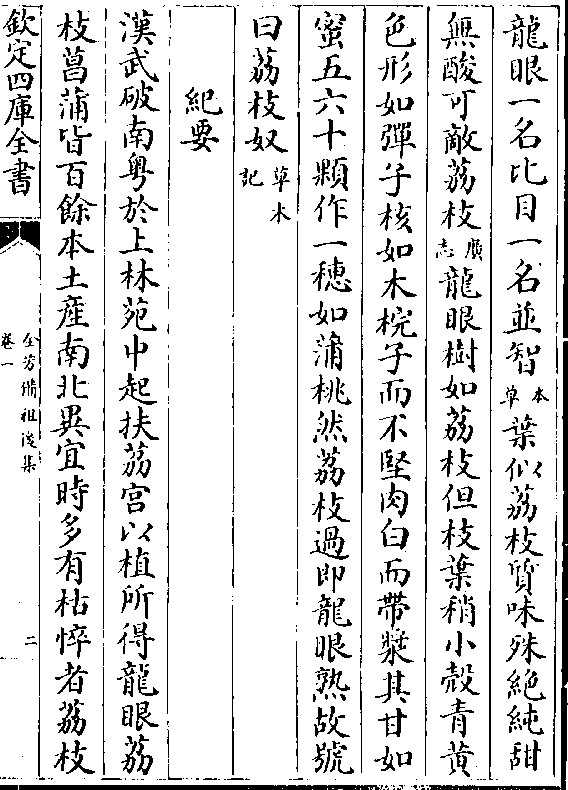 龍眼一名比目一名並智本草葉似荔枝質味殊絶純甜
無酸可敵荔枝廣志龍眼樹如荔枝但枝葉稍小殼青黄
色形如彈子核如木梡子而不堅肉白而帶漿其甘如
蜜五六十顆作一穗如蒲桃然荔枝過即龍眼熟故號
曰荔枝奴草木記
紀要
漢武破南粤於上林苑中起扶荔宫以植所得龍眼荔
枝菖蒲皆百餘本土産南北異宜時多有枯悴者荔枝
欽定四庫全書
全芳備祖後集
卷一
二